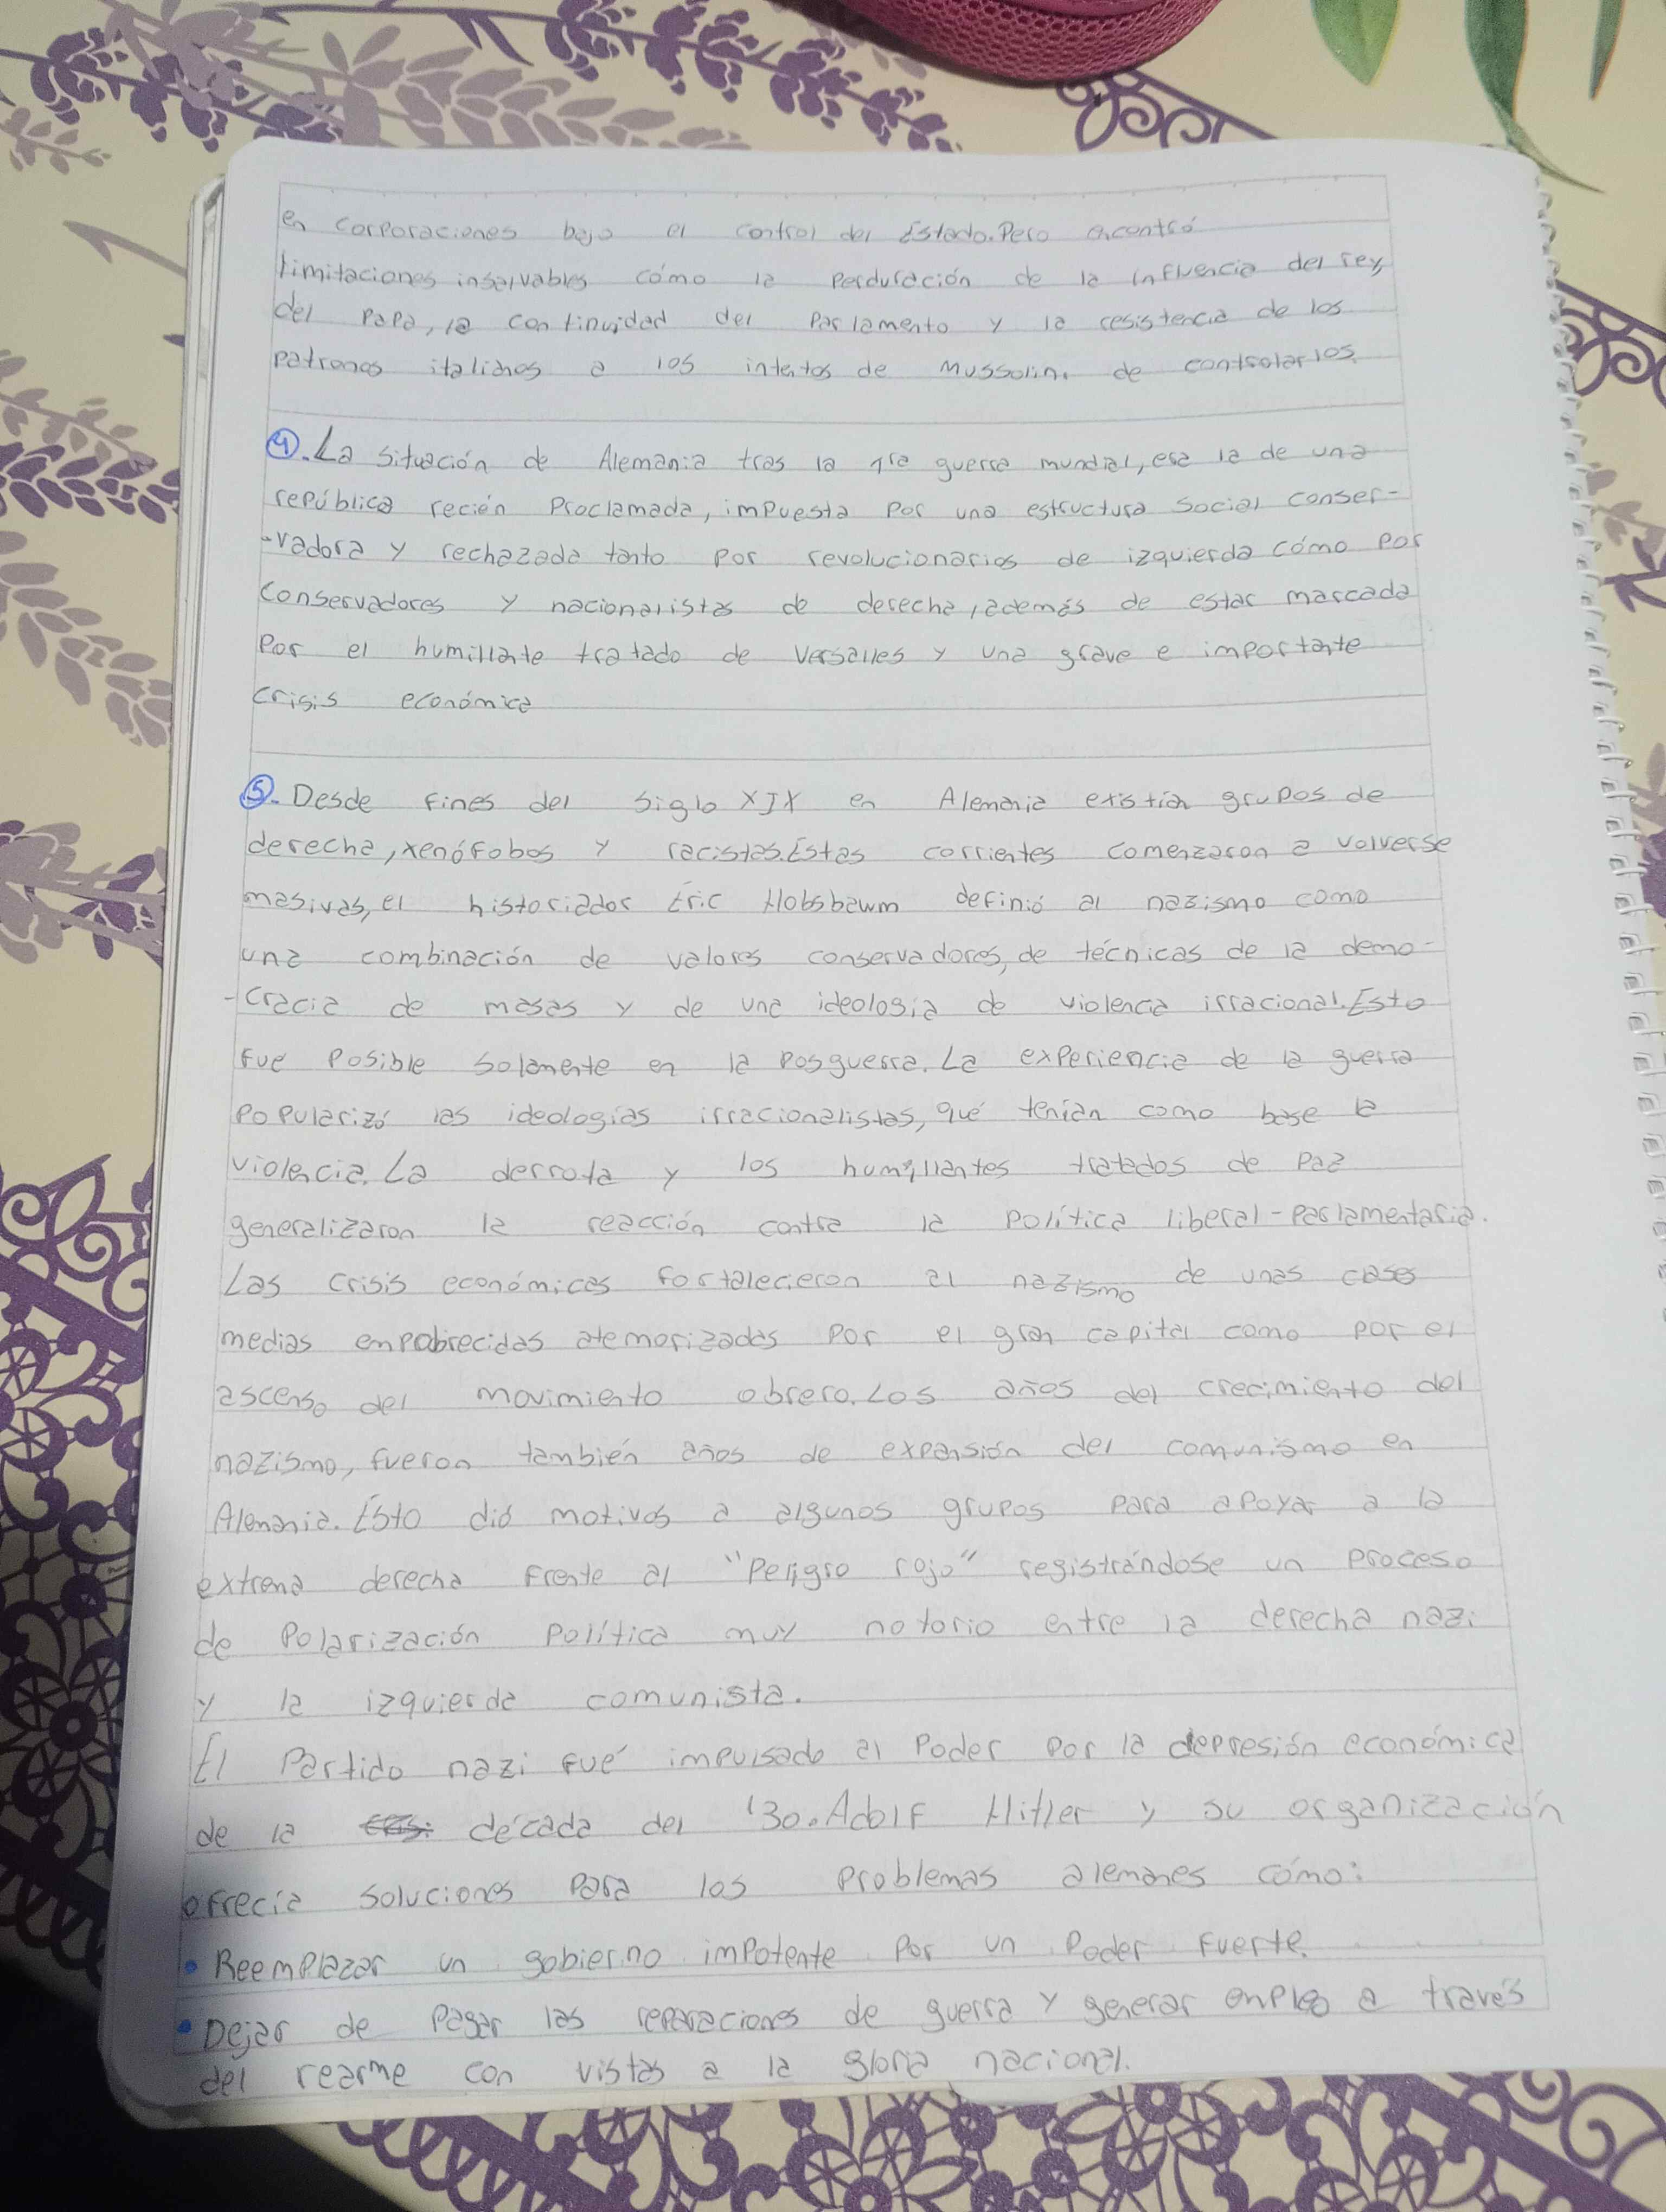 en corporaciones bajo el control del Estado. Pero encontró
limitaciones insalvables cómo la perduración de la influencia del rey,
del Papa, la continuidad del Parlamento y la resistencia de los
patronos italianos a los intentos de Mussolini de controlarlos.
④. La situación de Alemania tras la 1ra guerra mundial, era la de una
república recién Proclamada, impuesta por una estructura social conser-
-vadora y rechazada tanto por revolucionarios de izquierda cómo por
conservadores y nacionalistas de derecha, además de estar marcada
por el humillante tratado de Versalles y una grave e importante
crisis económica
⑤. Desde fines del siglo XIX en Alemania existían grupos de
derecha, xenófobos y racistas. Estas corrientes comenzaron a volverse
masivas, el historiador Eric Hobsbawm definió al nazismo como
una combinación de valores conservadores, de técnicas de la demo-
-cracia de masas y de una ideología de violencia irracional. Esto
fue posible solamente en la posguerra. La experiencia de la guerra
popularizó las ideologías irracionalistas, qué tenían como base la
violencia. La derrota y los humillantes tratados de paz
generalizaron la reacción contra la política liberal-parlamentaria.
Las crisis económicas fortalecieron al nazismo de unas clases
medias enpobrecidas atemorizadas por el gran capital como por el
ascenso del movimiento obrero. Los años del crecimiento del
nazismo, fueron también años de expansión del comunismo en
Alemania. Esto dió motivos a algunos grupos para apoyar a la
extrema derecha frente al "Peligro rojo" registrándose un proceso
de Polarización política muy notorio entre la derecha nazi
y la izquierda comunista.
El Partido nazi fué impulsado al Poder por la depresión económica
de la década del '30. Adolf Hitler y su organización
ofrecía soluciones para los problemas alemanes cómo:
• Reemplazar un gobierno impotente por un Poder fuerte.
• Dejar de pagar las reparaciones de guerra y generar enpleo a través
del rearme con vistas a la gloria nacional.